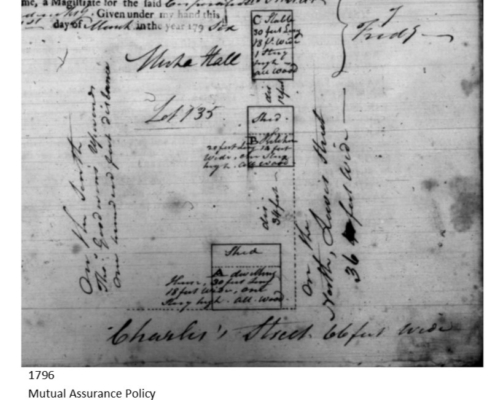 me, a Magistrate for the said Corporation
Given under my hand this
day of March in the year 179 Six
Micha Hall
Lot 735
C Stable
20 feet long
18 ft Wide
1 Story
high
all Wood
dis
Fredg
Shed.
B Kitchen
20 feet long 12 feet
Wide, One Story
high all Wood
dis
34 feet
Shed
A dwelling
House, 30 feet long
18 feet Wide, One
Story high. All Wood
On the South
one hundred feet distance
On the
North, Lewis Street
36 feet Wide
Charles's Street 66 feet Wide
1796
Mutual Assurance Policy